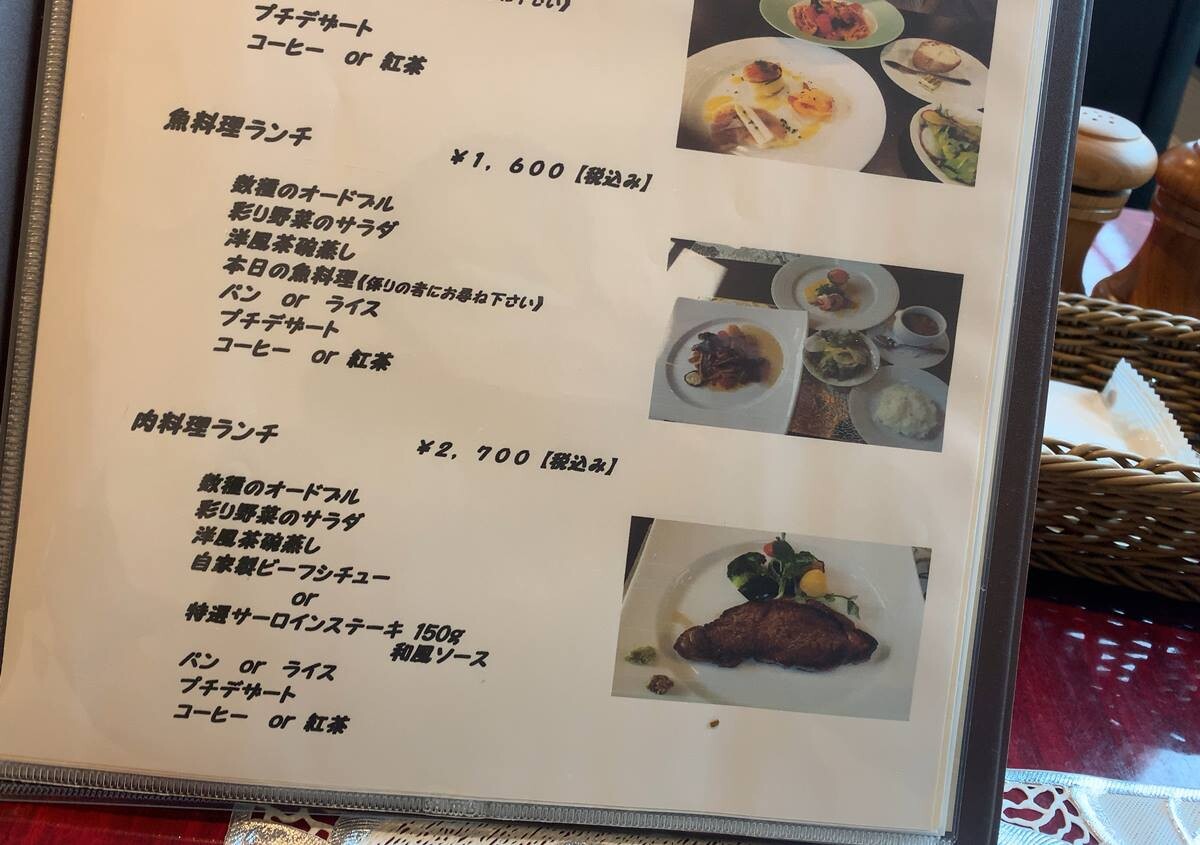 下さい》
プチデザート
コーヒー or 紅茶
魚料理ランチ
¥1,600【税込み】
数種のオードブル
彩り野菜のサラダ
洋風茶碗蒸し
本日の魚料理《係りの者にお尋ね下さい》
パン or ライス
プチデザート
コーヒー or 紅茶
肉料理ランチ
¥2,700【税込み】
数種のオードブル
彩り野菜のサラダ
洋風茶碗蒸し
自家製ビーフシチュー
or
特選サーロインステーキ 150g
和風ソース
パン or ライス
プチデザート
コーヒー or 紅茶